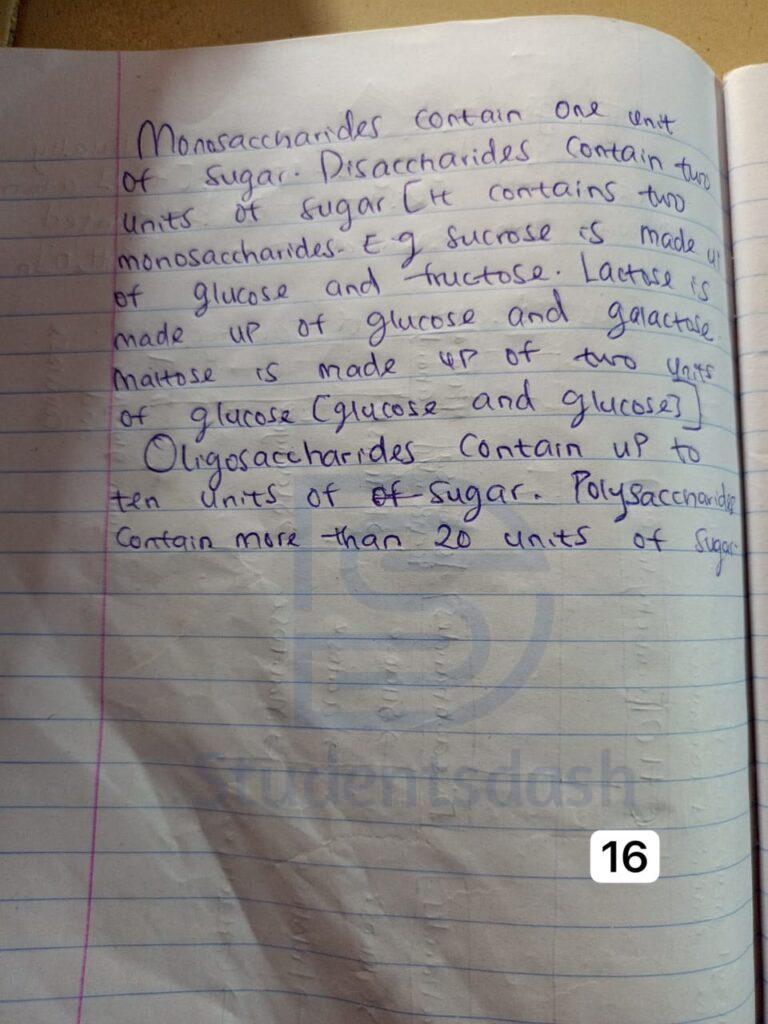 Monosaccharides contain one unit
of sugar. Disaccharides contain two
units of sugar. [It contains two
monosaccharides. E.g sucrose is made up
of glucose and fructose. Lactose is
made up of glucose and galactose.
Maltose is made up of two units
of glucose [glucose and glucose]]
Oligosaccharides contain up to
ten units of of sugar. Polysaccharides
contain more than 20 units of sugar.
Studentsdash
16